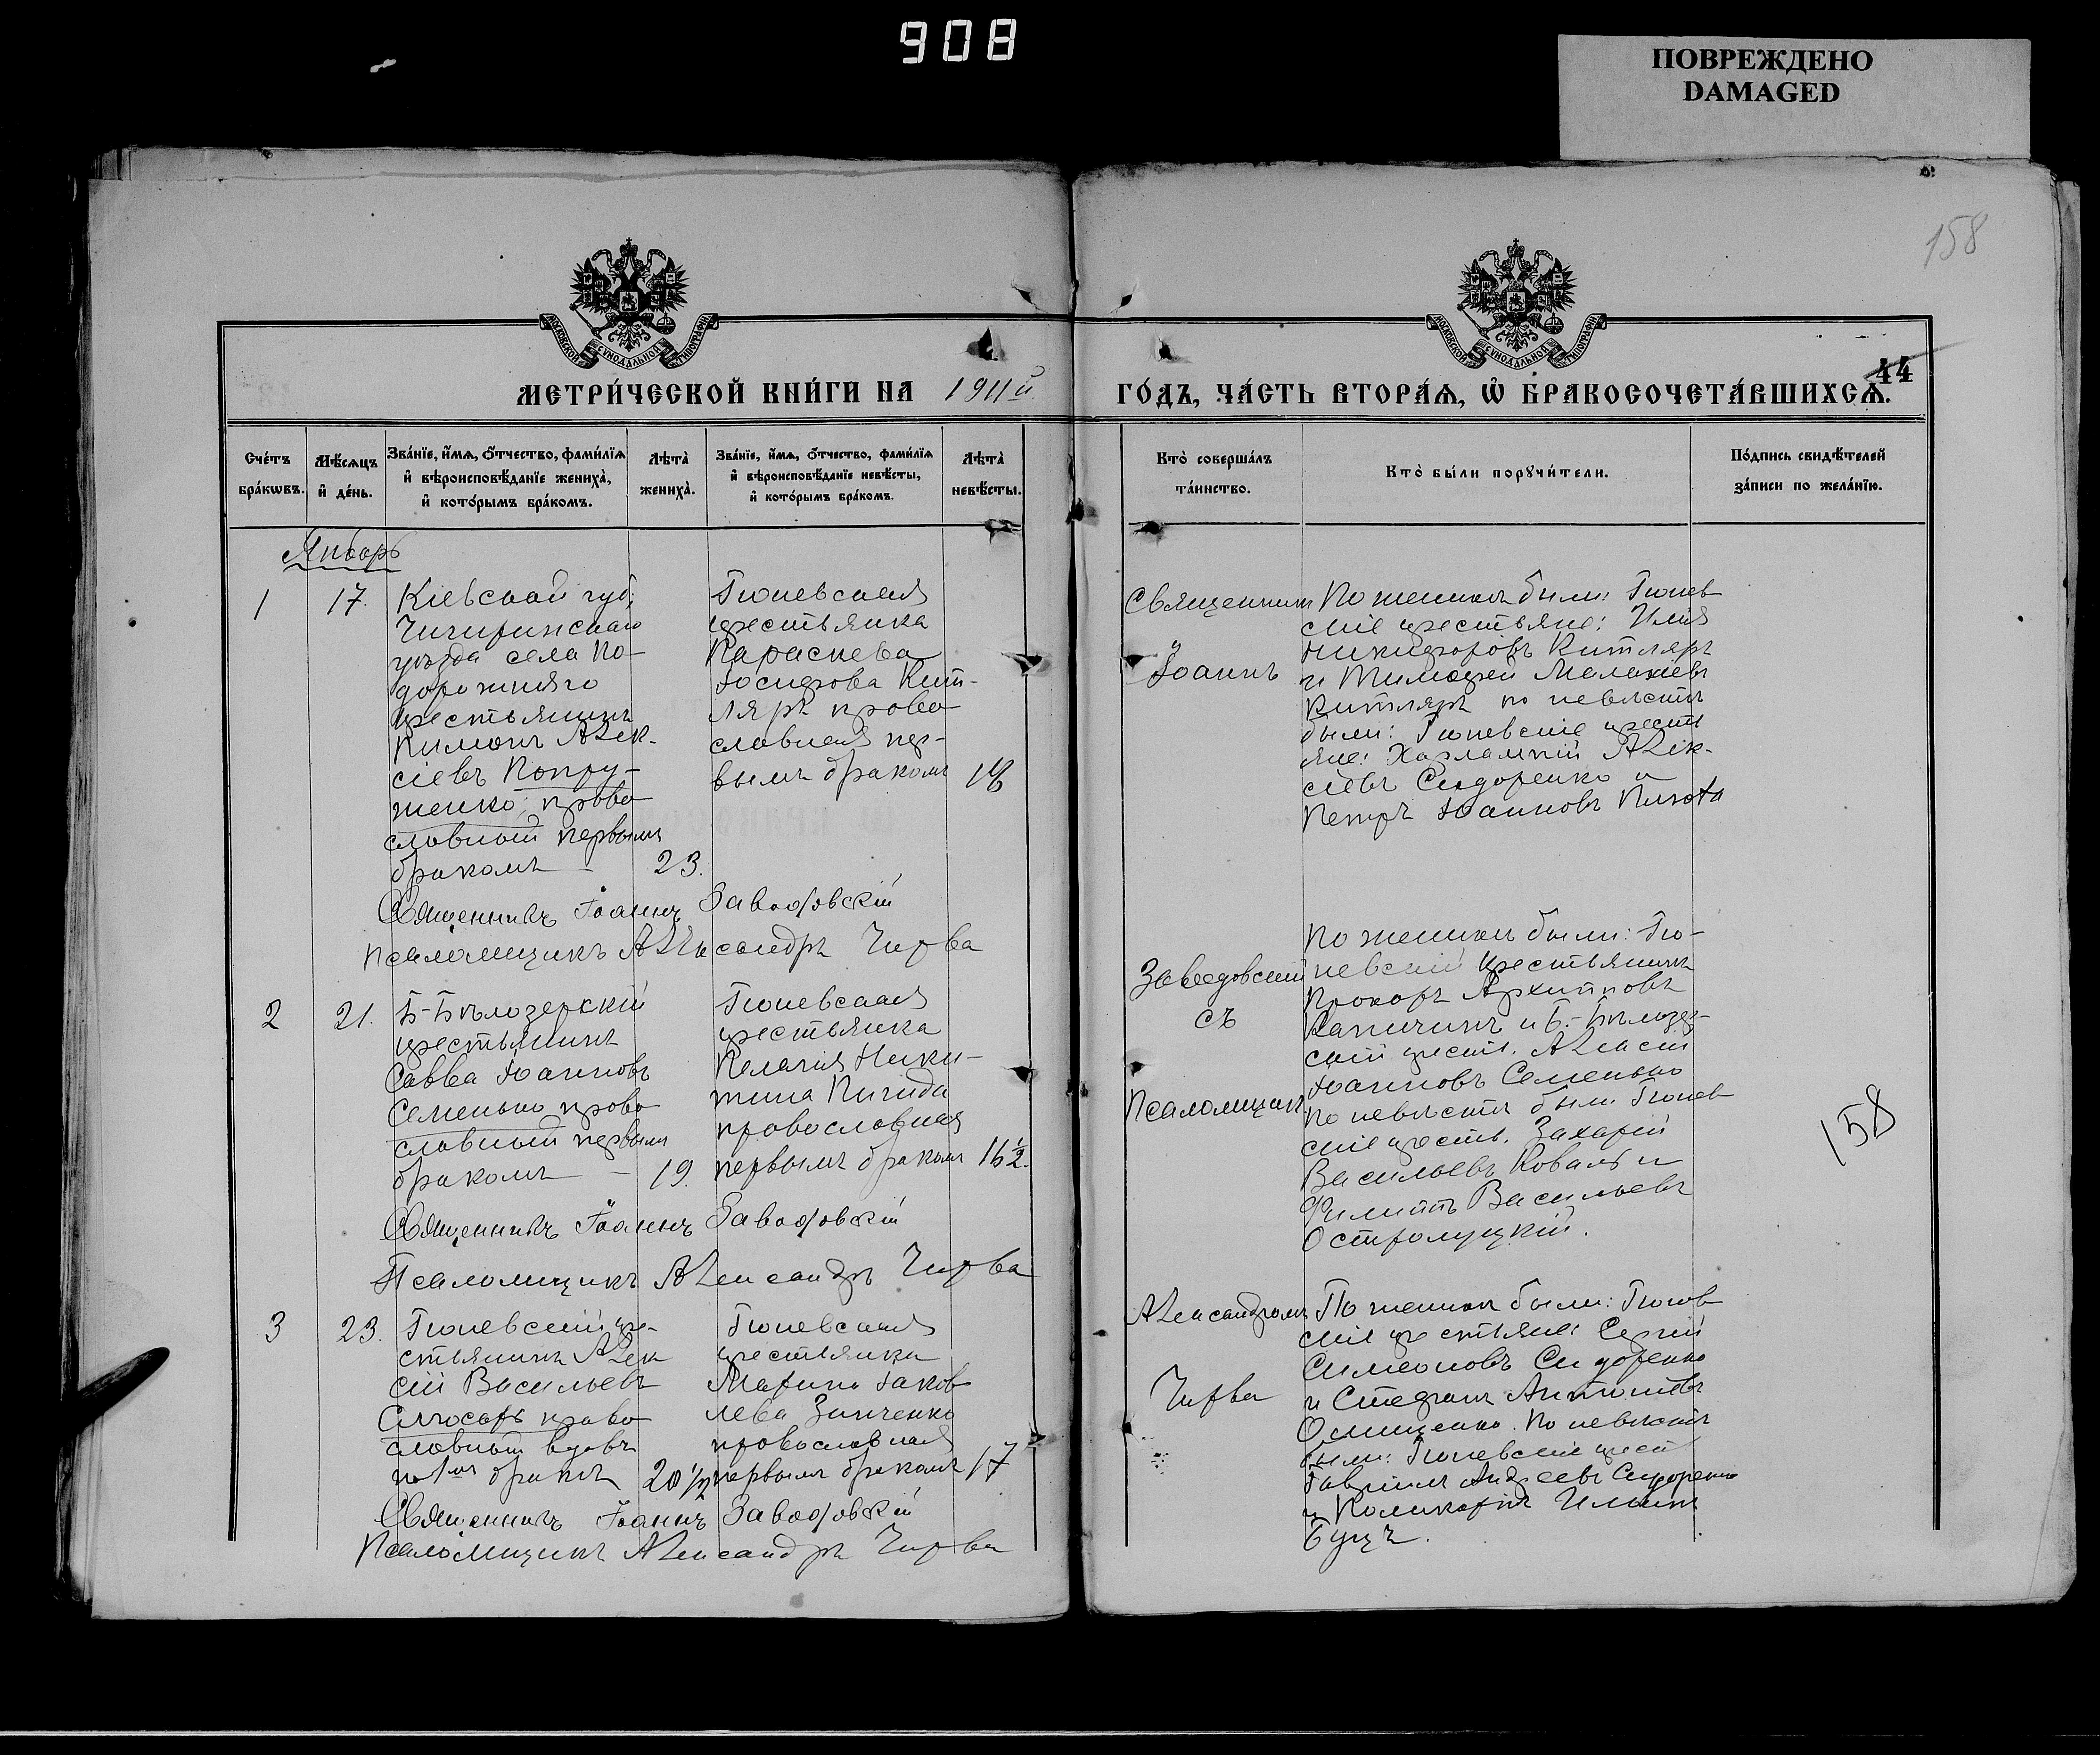 908
ПОВРЕЖДЕНО
DAMAGED
158
МОСКОВСКОЙ СѴНОДАЛЬНОЙ ТИПОГРАФІИ
МОСКОВСКОЙ СѴНОДАЛЬНОЙ ТИПОГРАФІИ
44
МЕТРИ́ЧЕСКОЙ КНИ́ГИ НА 1911й
ГО́ДЪ, ЧА́СТЬ ВТОРА́Ѧ, Ѡ҆ БРАКОСОЧЕТА́ВШИХСѦ.
Сче́тъ
бра́кѡвъ.
Мѣ́сѧцъ
и҆ де́нь.
Зва́нїе, и҆́мѧ, ѻ҆́тчество, фами́лїѧ
и҆ вѣроисповѣ́данїе жениха̀,
и҆ кото́рымъ бра́комъ.
Лѣ́та̀
жениха̀.
Зва́нїе, и҆́мѧ, ѻ҆́тчество, фами́лїѧ
и҆ вѣроисповѣ́данїе невѣ́сты,
и҆ кото́рымъ бра́комъ.
Лѣ́та̀
невѣ́сты.
Кто̀ соверша́лъ
та́инство.
Кто̀ бы́ли порꙋчи́тели.
По́дпись свидѣ́телей
за́писи по жела́нїю.
Январь
1
17.
Кіевской губ.
Чигиринскаго
уѣзда села По-
дорожняго
крестьянинъ
Пимонъ Алек-
сіевъ Копру-
женко, право
славный первымъ
бракомъ —
23.
крестьянка
Параскева
Іосифова Кит-
ляръ право
славная пер-
вымъ бракомъ
18
Священникъ
Іоаннъ
По женихѣ были:
скіе крестьяне: Илія
Никифоровъ Китляръ
и Тимофей
Китляръ по невѣстѣ
были: крестья
яне: Харлампій Алек-
сіевъ Сидоренко и
Петръ Іоанновъ
Священникъ Іоаннъ Заводовскій
Псаломщикъ Александръ Чирва
2
21.
Б-Бѣлозерскій
крестьянинъ
Савва Іоанновъ
Семенько право
славный первымъ
бракомъ —
19.
крестьянка
Пелагія Ники-
тина
православная
первымъ бракомъ
16½.
Заводовскій
съ
Псаломщик
По женихѣ были:
крестьянинъ
Прохоръ Архипповъ
и Б.-Бѣлозер-
скій крест. Алексій
Іоанновъ Семенько
по невѣстѣ были
скіе крест. Захарій
Васильевъ Коваль и
Филиппъ Васильевъ
Остролуцкій.
158
Священникъ Іоаннъ Заводовскій
Псаломщикъ Александръ Чирва
3
23.
кре-
стьянинъ Алек
сій Васильевъ
Слюсарь право
славный вдовъ
по 1мъ бракѣ
20½
крестьянка
Марина Іаков
лева Зинченко
православная
первымъ бракомъ
17
Александромъ
Чирва
По женихѣ были:
скіе крестьяне: Сергій
Симеоновъ Сидоренко
и Стефанъ Антоніевъ
Онищенко. По невѣстѣ
были: крест
Гавріилъ Андреевъ Сидоренко
и Поликарпъ Ильинъ
Буцъ.
Священникъ Іоаннъ Заводовскій
Псаломщикъ Александръ Чирва